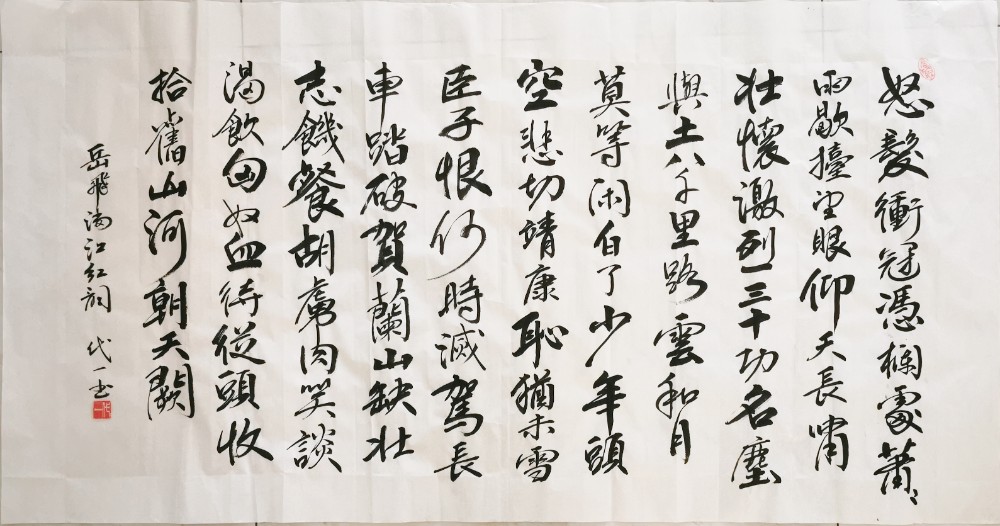 怒髮衝冠憑欄處蕭〻
雨歇擡望眼仰天長嘯
壯懷激烈三十功名塵
與土八千里路雲和月
莫等闲白了少年頭
空悲切靖康恥猶未雪
臣子恨何時滅駕長
車踏破賀蘭山缺壯
志饑餐胡虜肉笑談
渴飲匈奴血待從頭收
拾舊山河朝天闕
岳飛滿江紅詞 代一书
代一